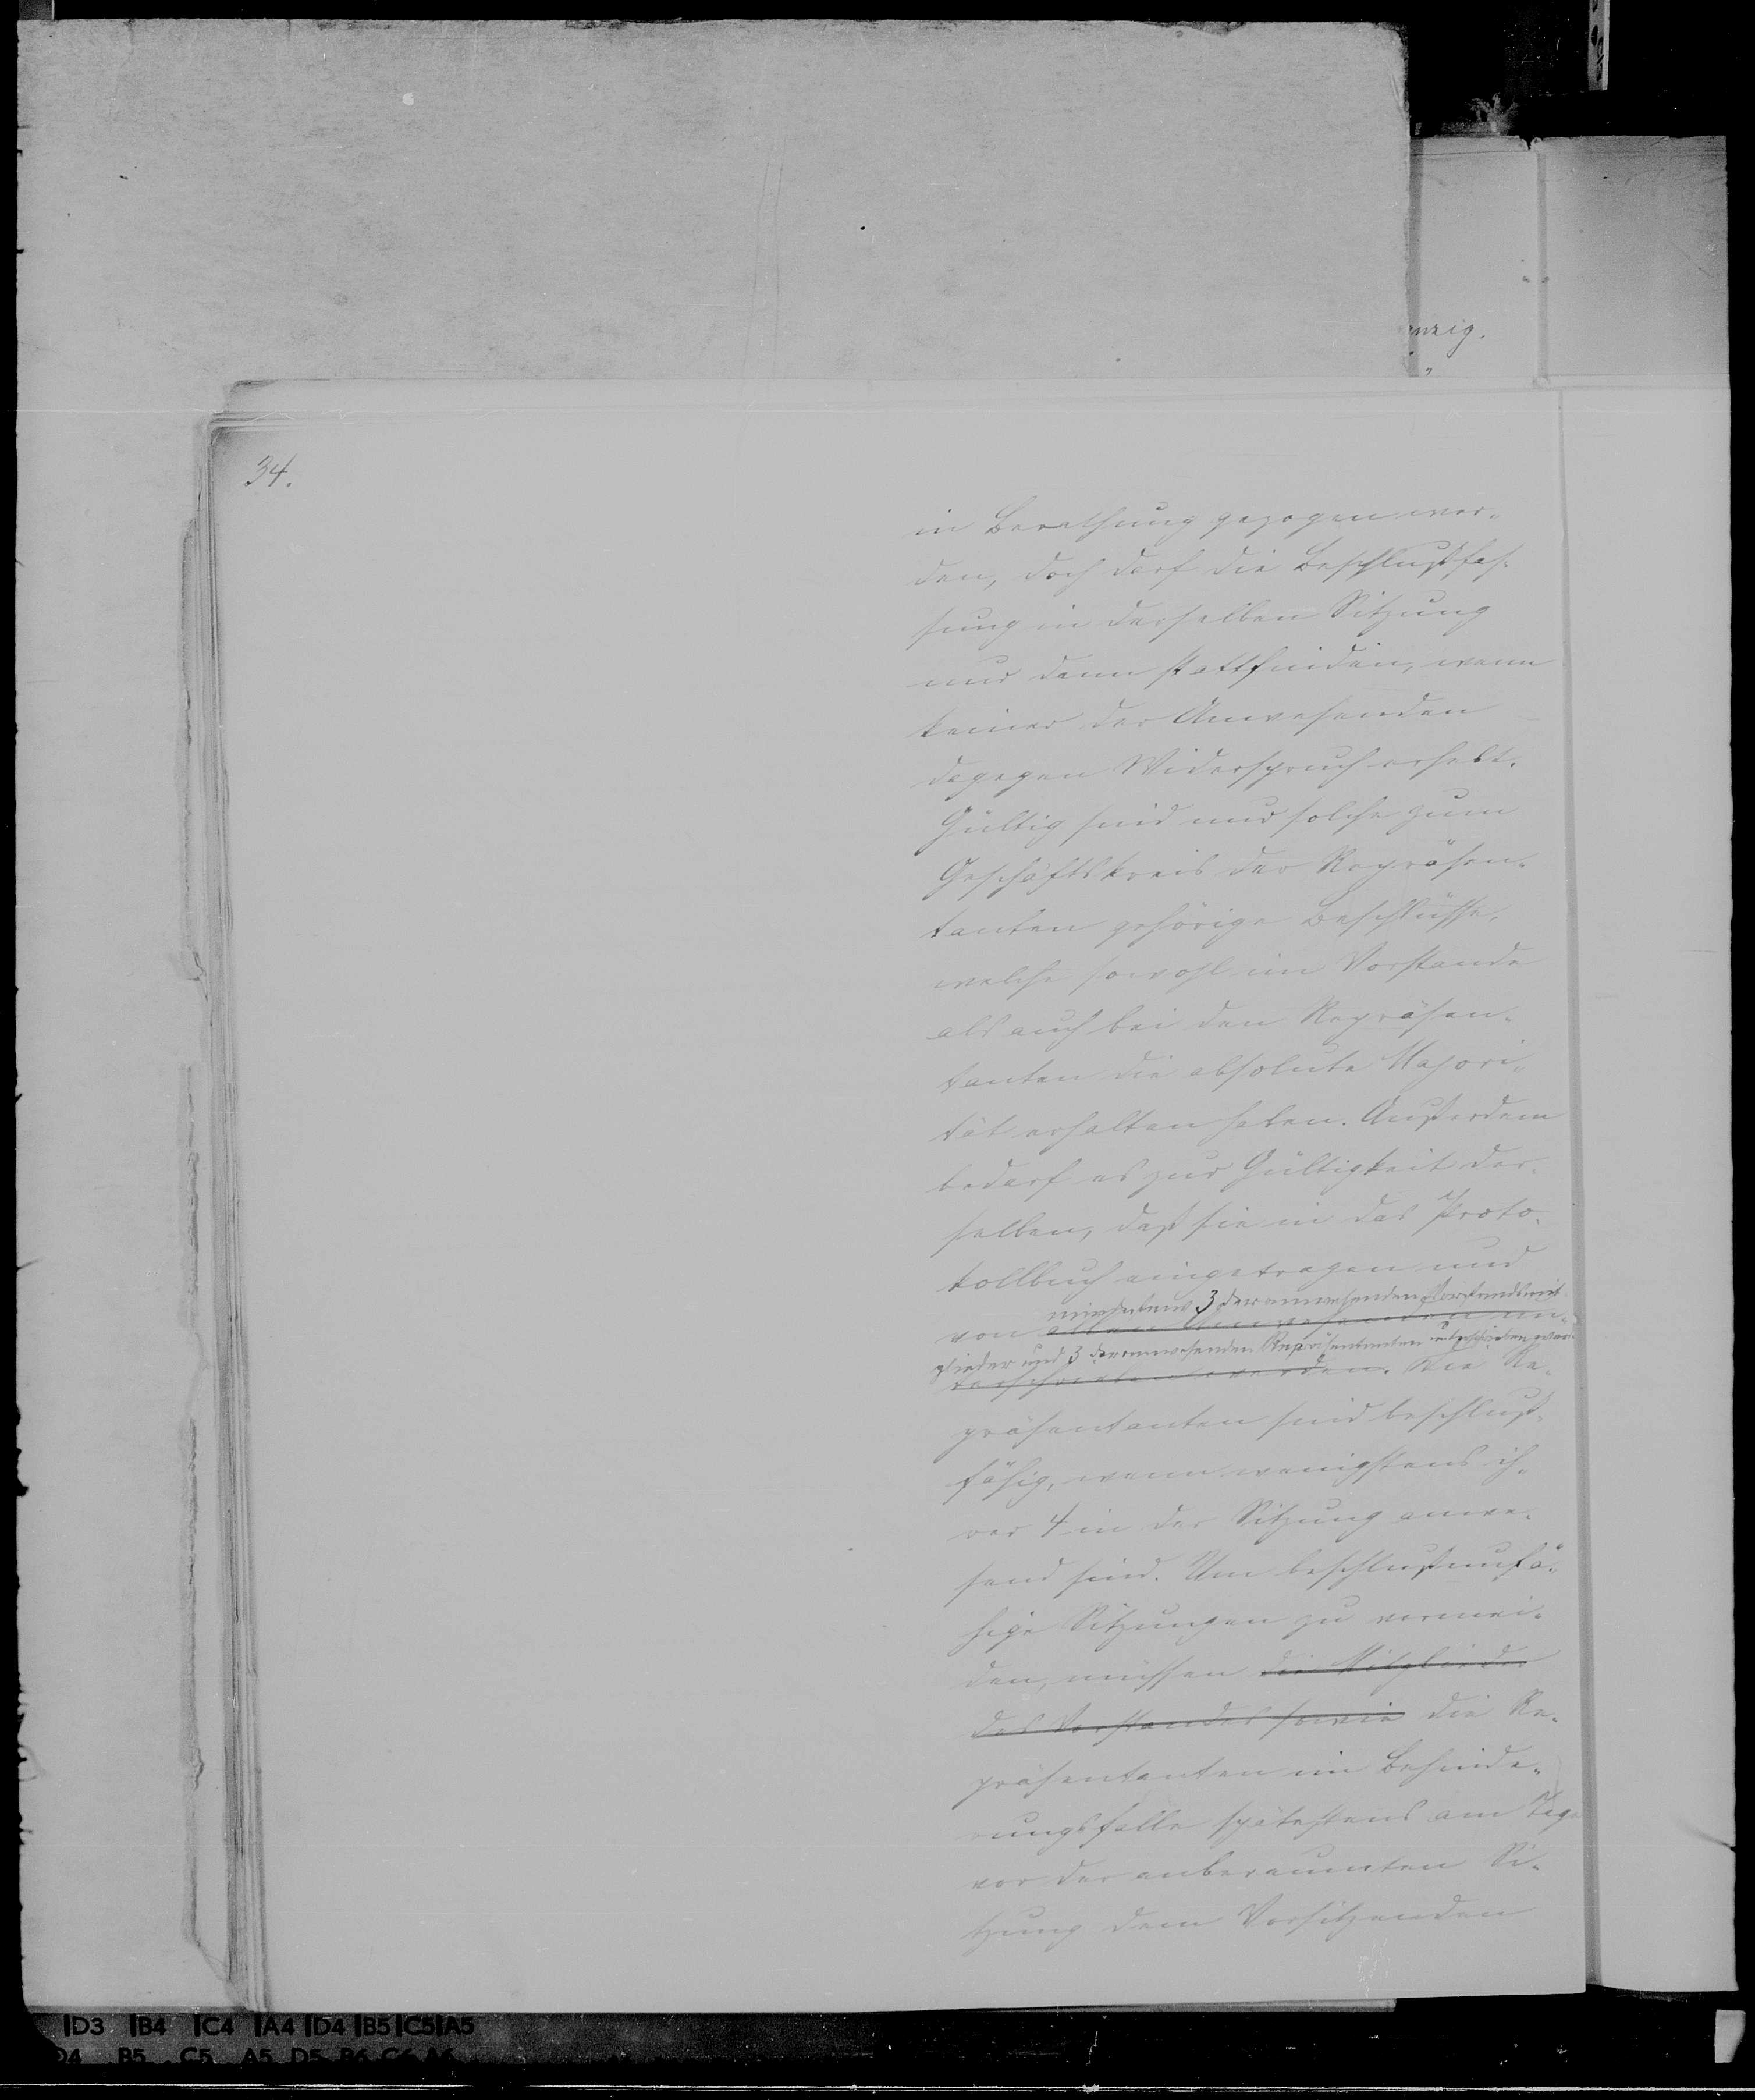 anzig.
34.
in Berathung gezogen wer-
den, doch darf die Beschlußfas-
sung in derselben Sitzung
nur dann stattfinden, wenn
keiner der Anwesenden
dagegen Widerspruch erhebt.
Gültig sind nur solche zum
Geschäftskreis der Repräsen-
tanten gehörige Beschlüsse,
welche sowohl im Vorstande
als auch bei den Repräsen-
tanten die absolute Majori-
tät erhalten haben. Außerdem
bedarf es zur Gültigkeit der-
selben, daß sie in das Proto-
kollbuch eingetragen und
mindestens 3 der anwesenden Vorstandsmit-
von allen Anwesenden un-
glieder und 3 der anwesenden Repräsentanten unterschrieben wer-
terschrieben werden. Die Re-
präsentanten sind beschluß-
fähig, wenn wenigstens ih-
rer 4 in der Sitzung anwe-
send sind. Um beschlußunfä-
hige Sitzungen zu vermei-
den, müssen die Mitglieder
des Vorstandes sowie die Re-
präsentanten im Behinde-
rungsfalle spätestens am Tage
vor der anberaumten Si-
tzung dem Vorsitzenden
D3 B4 C4 A4 D4 B5 C5 A5
D4 B5 C5 A5 D5 B6 C6 A6